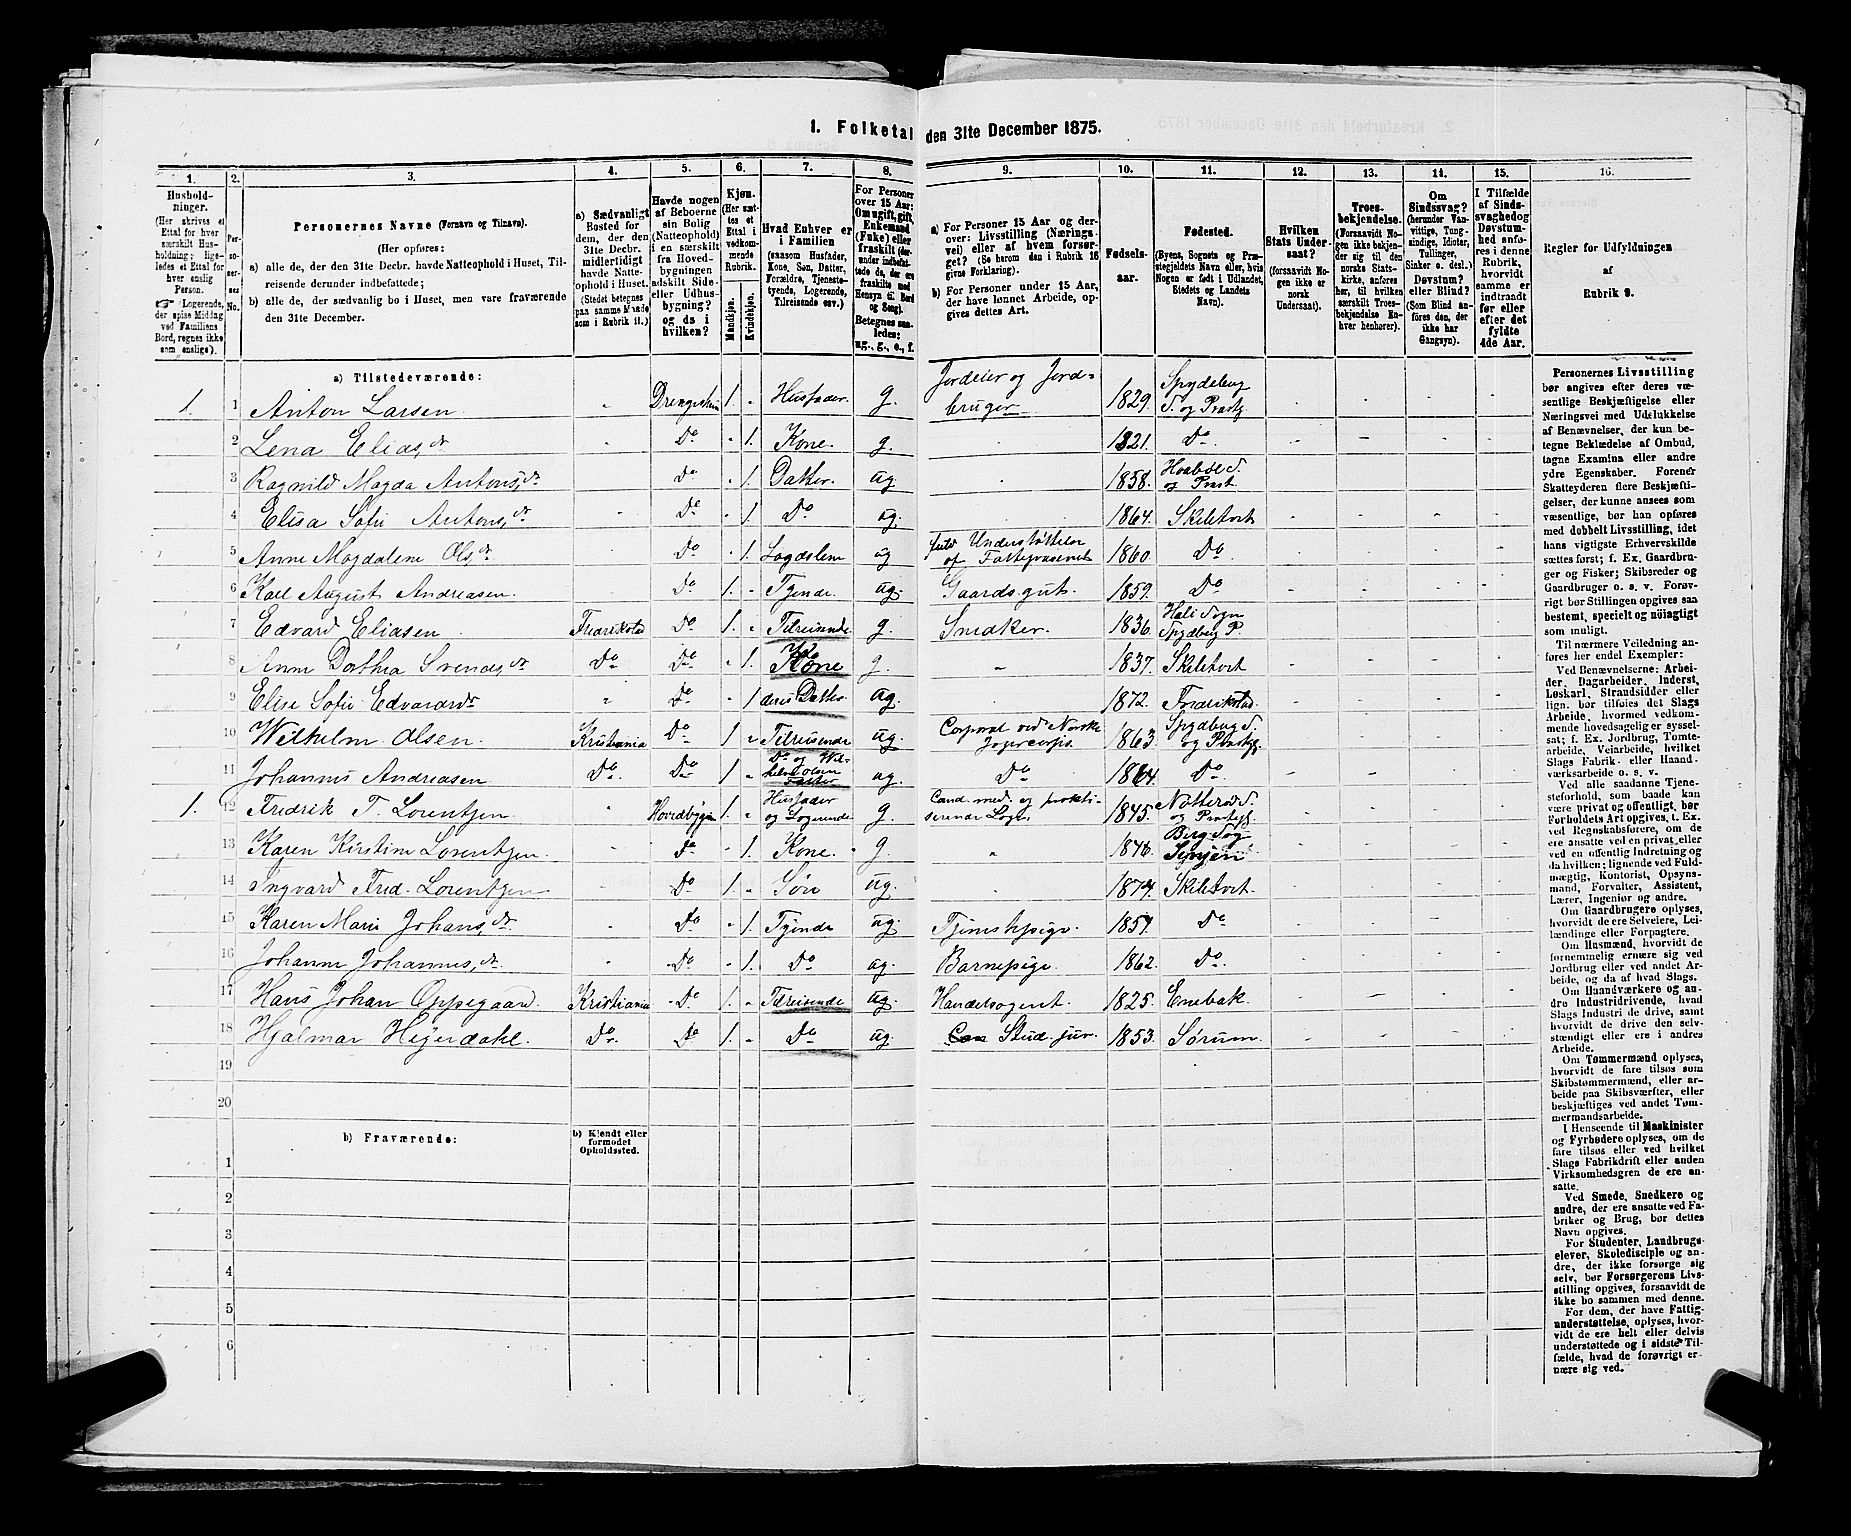 1. Folketal den 31te December 1875.
1. 2. 3. 4. 5. 6. 7. 8. 9. 10. 11. 12. 13. 14. 15. 16.
Hushold-
ninger.
(Her skrives et
Ettal for hver
særskilt Hus-
holdning; lige-
ledes et Ettal for
hver enslig
Person.
☞ Logerende,
der spise Middag
ved Familiens
Bord, regnes ikke
som enslige).
Per-
so-
ner-
nes
No.
Personernes Navne (Fornavn og Tilnavn).
(Her opføres:
a) alle de, der den 31te Decbr. havde Natteophold i Huset, Til-
reisende derunder indbefattede;
b) alle de, der sædvanlig bo i Huset, men vare fraværende
den 31te December.
a) Sædvanligt
Bosted for
dem, der den
31te Decbr.
midlertidigt
havde Natte-
ophold i Huset.
(Stedet betegnes
paa samme Maade
som i Rubrik 11.)
Havde nogen
af Beboerne
sin Bolig
(Natteophold)
i en særskilt
fra Hoved-
bygningen
adskilt Side-
eller Udhus-
bygning?
og da i
hvilken?
Kjøn.
(Her sæt-
tes et
Ettal i
vedkom-
mende
Rubrik.
Mandkjøn.
Kvindekjøn.
Hvad Enhver er
i Familien
(saasom Husfader,
Kone, Søn, Datter,
Forældre, Tjeneste-
tyende, Logerende,
Tilreisende osv.)
For Personer
over 15 Aar:
Om ugift, gift,
Enkemand
(Enke) eller
fraskilt (der-
under indbefat-
tede de, der ere
fraskilte med
Hensyn til Bord
og Seng).
Betegnes saa-
ledes:
ug., g., e., f.
a) For Personer 15 Aar og der-
over: Livsstilling (Nærings-
vei) eller af hvem forsør-
get? (Se herom den i Rubrik 16
givne Forklaring).
b) For Personer under 15 Aar,
der have lønnet Arbeide, op-
gives dettes Art.
Fødsels-
aar.
Fødested.
(Byens, Sognets og Præ-
stegjeldets Navn eller, hvis
Nogen er født i Udlandet,
Stedets og Landets
Navn).
Hvilken
Stats Under-
saat?
(forsaavidt No-
gen ikke er
norsk
Undersaat).
Troes-
bekjendelse.
(Forsaavidt No-
gen ikke bekjen-
der sig til den
norske Stats-
kirke, anføres
her, til hvilken
særskilt Troes-
bekjendelse En-
hver henhører).
Om
Sindssvag?
(herunder Van-
vittige, Tung-
sindige, Idioter,
Tullinger,
Sinker o. desl.)
Døvstum?
eller Blind?
(Som Blind an-
føres den, der
ikke har
Gangsyn).
I Tilfælde
af Sinds-
svaghed og
Døvstum-
hed anfø-
res i denne
Rubrik,
hvorvidt
samme er
indtraadt
før eller
efter det
fyldte
4de Aar.
Regler for Udfyldningen
af
Rubrik 9.
a) Tilstedeværende:
1. 1 Anton Larsen 1. Husfader. g. Jordeier og Jord-
bruger 1829. Spydeberg
S. og Præstg.
2 Lena Elias dr. Do 1. Kone. g. 1821. Do
3 Ragnild Magda Antons dr. Do 1. Datter. ug. 1858.
4 Elisa Sofie Antons dr. Do 1. Do ug. 1864. Skiletvet
5 Anne Magdalene Ols dr. Do 1. Lægdslem ug 1860. Do
6 Karl August Andreasen. Do 1. Tjende. ug. Gaardsgut. 1859. Do
7 Edvard Eliasen Fredrikstad Do 1. Tilreisende g. Snedker. 1836. Høli Sogn
Spydberg P.
8 Anne Dorthea Svends dr. Do Do 1. Kone g. 1837. Skiletvet
9 Elise Sofie Edvards dr. Do 1 deres Datter ug. 1872. Fredrikstad
10 Wilhelm Olsen Kristiania Do 1 Tilreisende ug. Corporal ved Norske
Jægercorps. 1863 Spydberg S.
og Præstg.
11 Johannes Andreasen Do. Do 1 ug. Do 1864. Do
1. 12 Fredrik T. Lorentzen Hovedbygn 1. Husfader
og Logerende g. Cand. med. og prakti-
serende Læge 1845. Nøtterø S.
og Præstg.
13 Karen Kirstine Lorentzen. Do 1. Kone. g. 1846. Berg Sog
14 Ingvard Fred. Lorentzen Do 1. Søn ug. 1874. Skiletvet.
15 Karen Marie Johans dr. Do 1. Tjende ug. Tjenestepige. 1857. Do
16 Johanne Johannes dr. Do 1. Do ug. Barnepige. 1862. Do
17 Hans Johan Oppegaard Kristiania Do 1. Tilreisende ug. Handelsagent. 1825. Enebak.
18 Hjalmar Heyerdahl. Do. Do 1. Do ug. Stud. jur. 1853. Sørum.
19
20
b) Fraværende:
b) Kjendt eller
formodet
Opholdssted.
1
2
3
4
5
6
Personernes Livsstilling
bør angives efter deres væ-
sentlige Beskjæftigelse eller
Næringsvei med Udelukkelse
af Benævnelser, der kun be-
tegne Beklædelse af Ombud,
tagne Examina eller andre
ydre Egenskaber. Forener
Skatteyderen flere Beskjæfti-
gelser, der kunne ansees som
væsentlige, bør han opføres
med dobbelt Livsstilling, idet
hans vigtigste Erhvervskilde
sættes først; f. Ex. Gaardbru-
ger og Fisker; Skibsreder og
Gaardbruger o. s. v. Forøv-
rigt bør Stillingen opgives saa
bestemt, specielt og nøiagtigt
som muligt.
Til nærmere Veiledning an-
føres her endel Exempler:
Ved Benævnelserne: Arbei-
der, Dagarbeider, Inderst,
Løskarl, Strandsidder eller
lign. bør tilføies det Slags
Arbeide, hvormed vedkom-
mende hovedsagelig er syssel-
sat; f. Ex. Jordbrug, Tomte-
arbeide, Veiarbeide, hvilket
Slags Fabrik- eller Haand-
værksarbeide o. s. v.
Ved alle saadanne Tjene-
steforhold, som baade kan
være privat og offentligt, bør
Forholdets Art opgives, t. Ex.
ved Regnskabsførere, om de
ere ansatte ved en privat eller
ved en offentlig Indretning og
da hvilken; lignende ved Fuld-
mægtig, Kontorist, Opsyns-
mand, Forvalter, Assistent,
Lærer, Ingeniør og andre.
Om Gaardbrugere oplyses,
hvorvidt de ere Selveiere, Lei-
lændinge eller Forpagtere.
Om Husmænd, hvorvidt de
fornemmelig ernære sig ved
Jordbrug eller ved andet Ar-
beide, og da af hvad Slags.
Om Haandværkere og an-
dre Industridrivende, hvad
Slags Industri de drive, samt
hvorvidt de drive den selv-
stændigt eller ere i andres
Arbeide.
Om Tømmermænd oplyses,
hvorvidt de fare tilsøs som
Skibstømmermænd, eller ar-
beide paa Skibsværfter, eller
beskjæftiges ved andet Tøm-
mermandsarbeide.
I Henseende til Maskinister
og Fyrbødere oplyses, om de
fare tilsøs eller ved hvilket
Slags Fabrikdrift eller anden
Virksomhedsgren de ere an-
satte.
Ved Smede, Snedkere og
andre, der ere ansatte ved Fa-
briker og Brug, bør dettes
Navn opgives.
For Studenter, Landbrugs-
elever, Skoledisciple og an-
dre, der ikke forsørge sig
selv, bør Forsørgerens Livs-
stilling opgives, forsaavidt de
ikke bo sammen med denne.
For dem, der have Fattig-
understøttelse, oplyses, hvor-
vidt de ere helt eller delvis
understøttede og i sidste Til-
fælde, hvad de forøvrigt er-
nære sig ved.